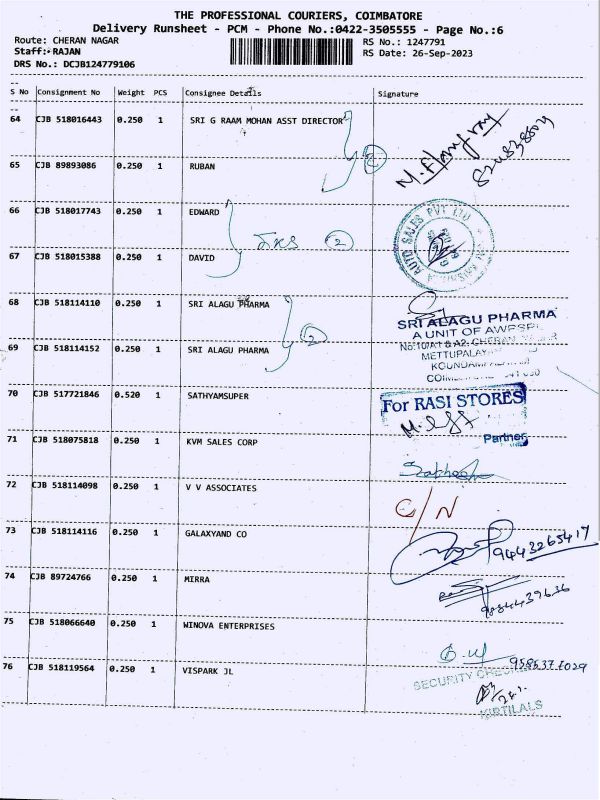 THE PROFESSIONAL COURIERS, COIMBATORE
Delivery Runsheet - PCM - Phone No.:0422-3505555 - Page No.:6
Route: CHERAN NAGAR RS No.: 1247791
Staff:-RAJAN RS Date: 26-Sep-2023
DRS No.: DCJB124779106
S No Consignment No Weight PCS Consignee Details Signature
64 CJB 518016443 0.250 1 SRI G RAAM MOHAN ASST DIRECTOR
2
65 CJB 89893086 0.250 1 RUBAN
66 CJB 518017743 0.250 1 EDWARD
2
AUTO SALES PVT LTD
67 CJB 518015388 0.250 1 DAVID
68 CJB 518114110 0.250 1 SRI ALAGU PHARMA
2
SRI ALAGU PHARMA
A UNIT OF
69 CJB 518114152 0.250 1 SRI ALAGU PHARMA
70 CJB 517721846 0.520 1 SATHYAMSUPER
For RASI STORES
Partner
71 CJB 518075818 0.250 1 KVM SALES CORP
72 CJB 518114098 0.250 1 V V ASSOCIATES
C/N
73 CJB 518114116 0.250 1 GALAXYAND CO
9443265417
74 CJB 89724766 0.250 1 MIRRA
9884439636
75 CJB 518066640 0.250 1 WINOVA ENTERPRISES
76 CJB 518119564 0.250 1 VISPARK JL
SECURITY
KIRTILALS